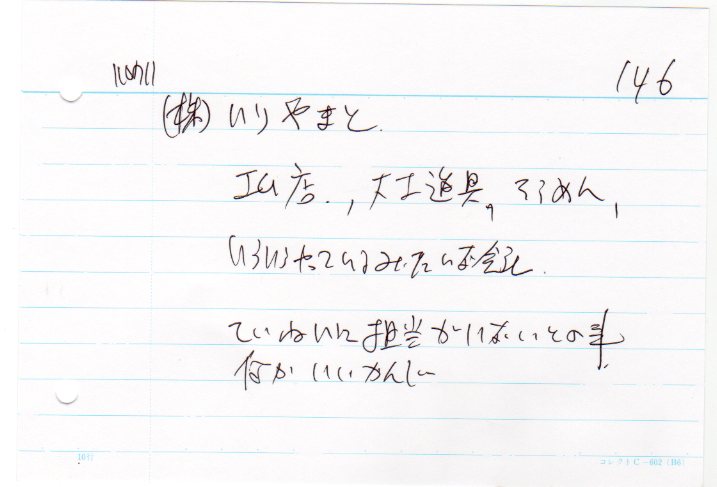 146
(株)いりやまと
工ム店.,大工道具,そうめん,
いろいろやっているみたいな会社.
ていねいに担当がいないとの事.
何かいいかんじ
103?
コレクト C-602 (B6)